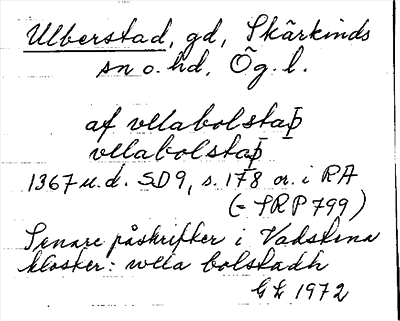 Ulberstad, gd, Skärkinds
sn o. hd, Ög. l.
af vllabolstaþ
vllabolstaþ
1367 u.d. SD9, s. 178 or. i RA
(= SRP 799)
Senare påskrifter i Vadstena
kloster: wlla bolstadh
1972